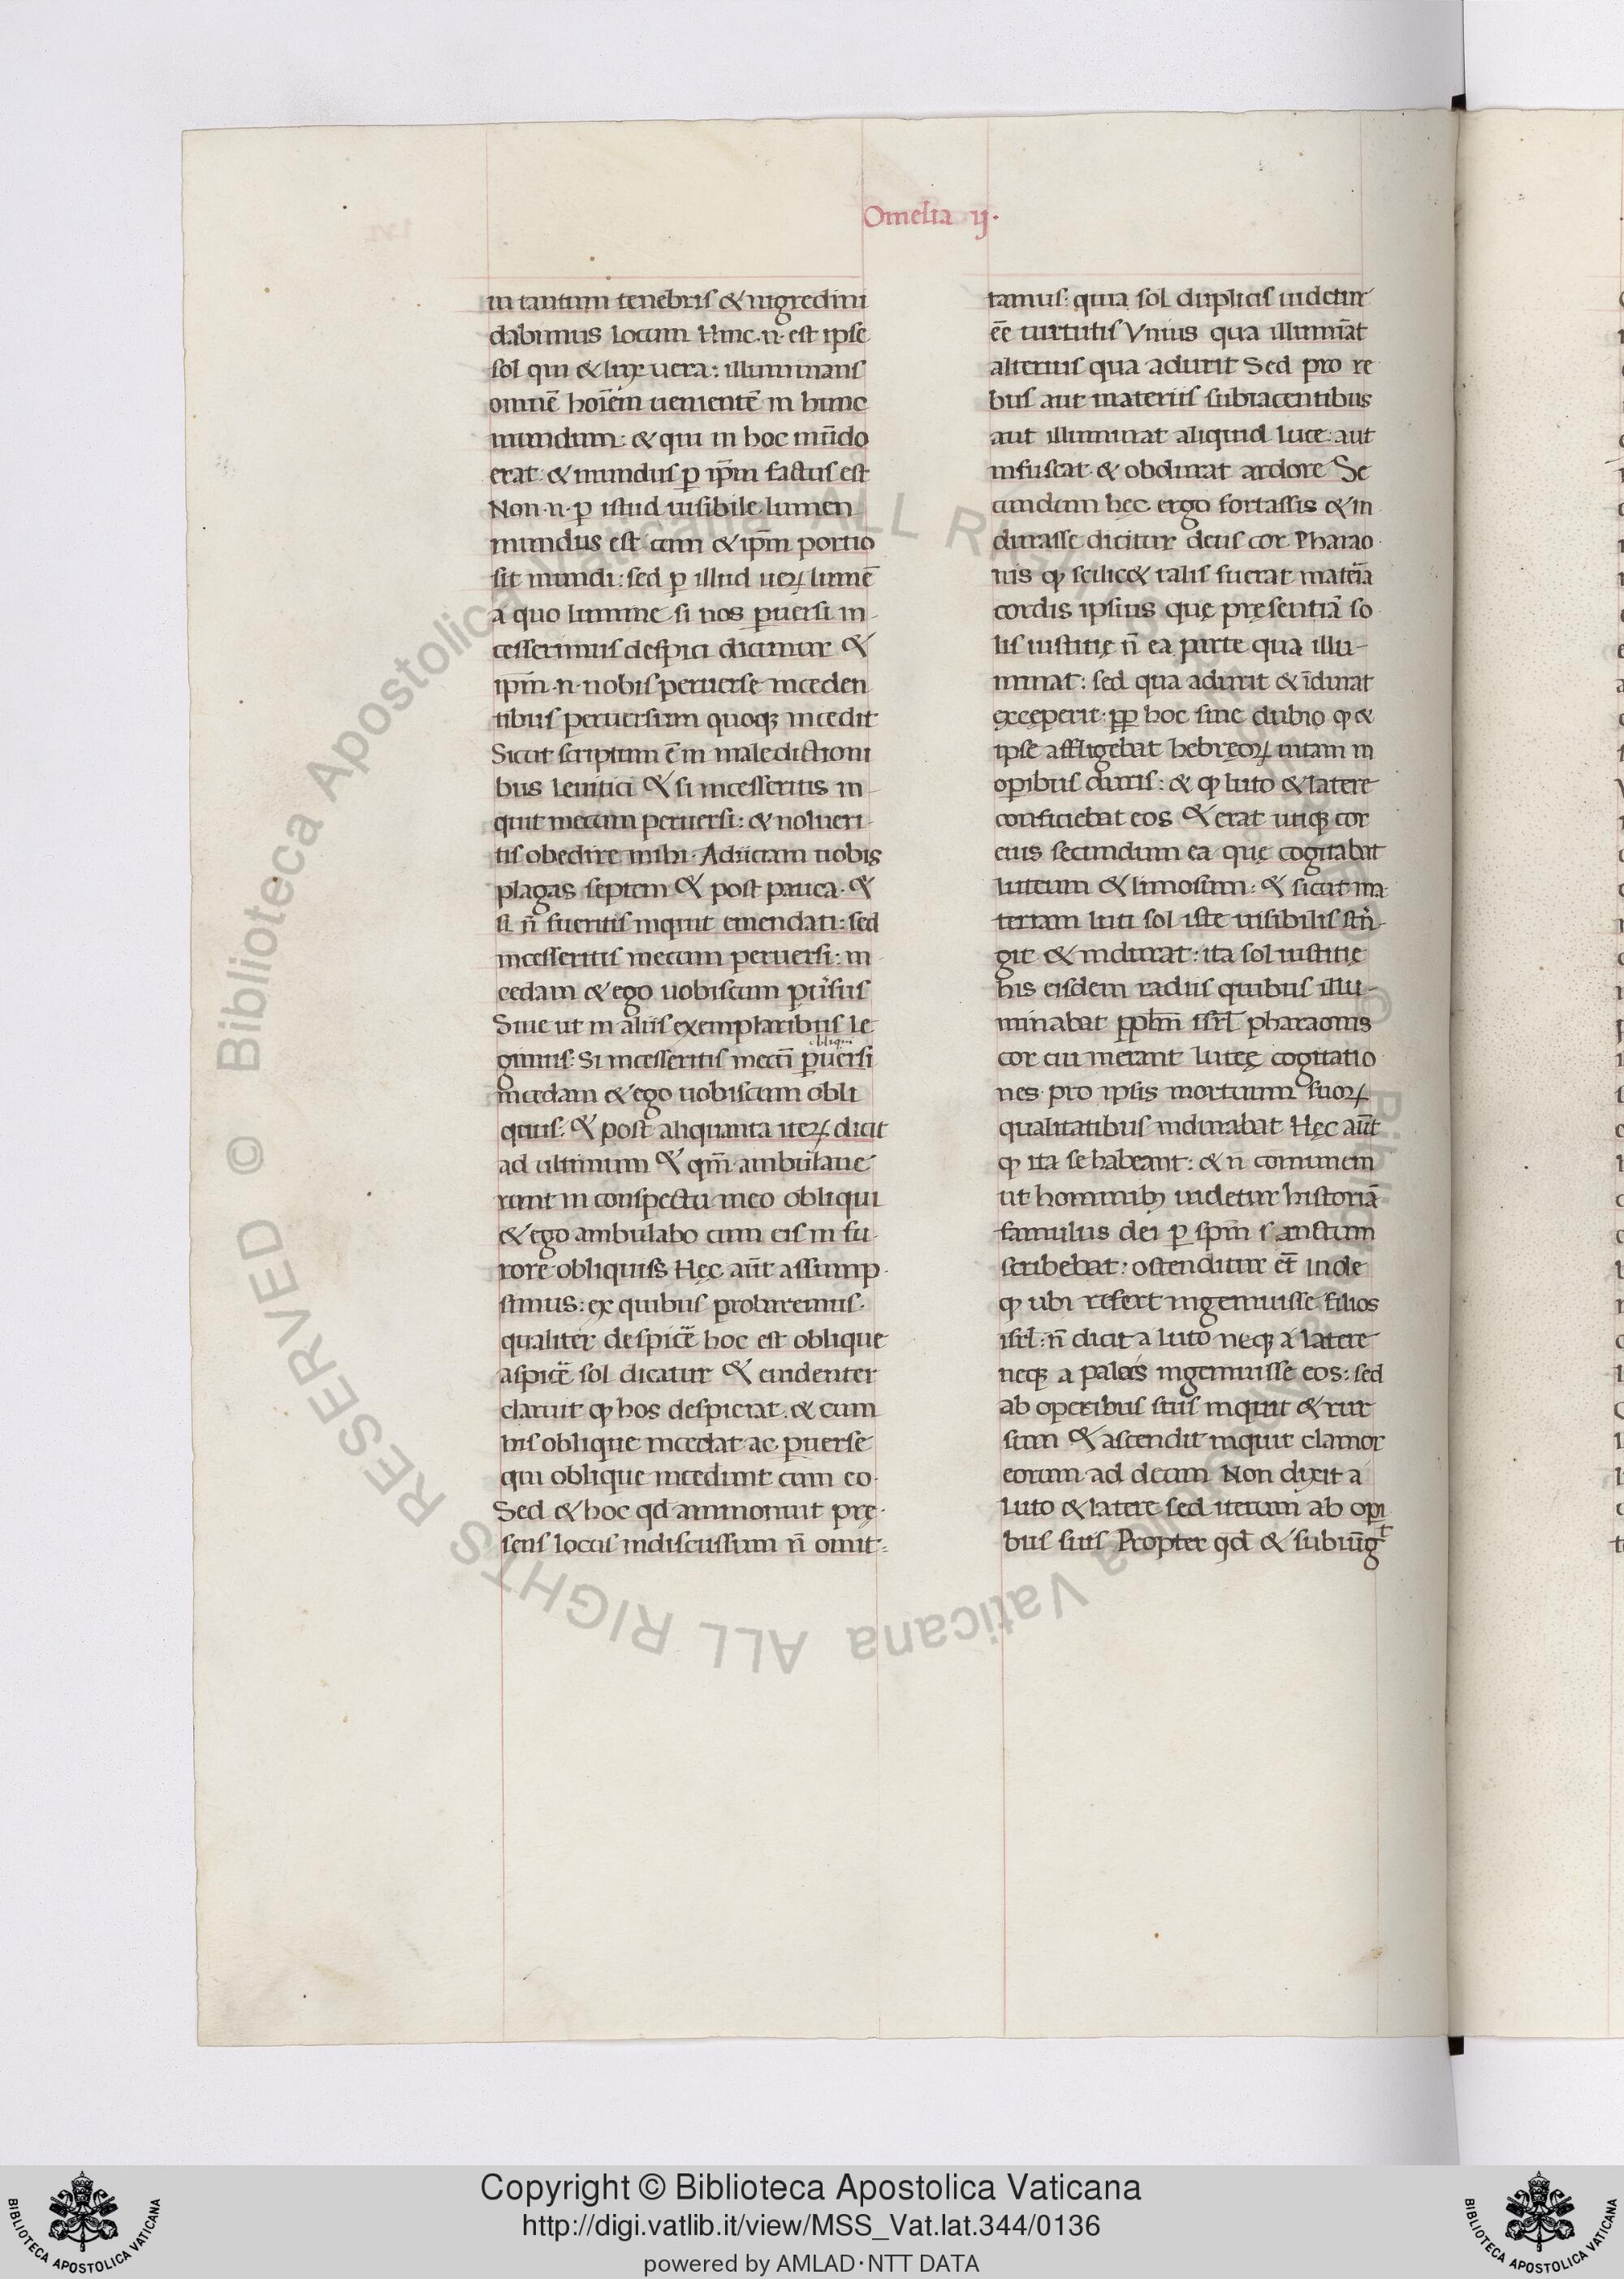 Omelia ij.
in tantum tenebris & nigredini
dabimus locum Hinc .n. est ipse
sol qui & lux uera: illuminans
omnē hoīem uenientē in hunc
mundum: & qui in hoc mūdo
erat: & mundus p̱ ip̄m factus est
Non .n. p̱ istud uisibile lumen
mundus est cum & ip̄m portio
sit mundi: sed p̱ illud ueꝝ lumē
a quo lumine si nos p̱uersi in
cesserimus despici dicimur &
ip̄m .n. nobis peruerse inceden
tibus peruersum quoqꝫ incedit
Sicut scriptum ē in maledictioni
bus leuitici & si incesseritis in
quit mecum peruersi: & nolueri
tis obedire mihi. Adiiciam uobis
plagas septem & post pauca. &
si n̄ fueritis inquit emendati: sed
incesseritis mecum peruersi: in
cedam & ego uobiscum p̱uˀsus
Siue ut in aliis exemplaribus le
obliqui
gimus: Si incesseritis mecū p̱uersi
incedam & ego uobiscum obli
quus. & post aliquanta iteꝝ dicit
ad ultimum & qm̄ ambulaue
runt in conspectu meo obliqui
& ego ambulabo cum eis in fu
rore obliquus Hęc aūt assump
simus: ex quibus probaremus.
qualiter despicē hoc est oblique
aspicē sol dicatur & euidenter
claruit ꝙ hos despiciat. & cum
his oblique incedat ac p̱uerse
qui oblique incedunt cum eo.
Sed & hoc qd ammonuit prę
sens locus indiscussum n̄ omit-
tamus: quia sol duplicis uidetur
eē uirtutis Vnius qua illumīat
alterius qua adurit Sed pro re
bus aut materiis subiacentibus
aut illuminat aliquid luce: aut
infuscat & obdurat ardore Se
cundum hec ergo fortassis & in
durasse dicitur deus cor Pharao
nis ꝙ scilicet talis fuerat mateīa
cordis ipsius quę pręsentiā so
lis iustitię n̄ ea parte qua illu-
minat: sed qua adurit & īdurat
exceperit: ꝓp hoc sine dubio ꝙ &
ipse affligebat hebręoꝝ uitam in
op̱ibus duris: & ꝙ luto & latere
conficiebat eos & erat utiqꝫ cor
eius secundum ea quę cogitabat
luteum & limosum: & sicut ma
teriam luti sol iste uisibilis strī-
git & indurat: ita sol iustitię
his eisdem radiis quibus illu-
minabat ppl̄m isrl̄ pharaonis
cor cui inerant luteę cogitatio
nes pro ipsis mortuum suoꝝ
qualitatibus indurabat Hęc aūt
ꝙ ita se habeant: & n̄ comunem
ut hominibꝫ uidetur historiā
famulus dei p̱ sp̄m sanctum
scribebat: ostenditur et̄ inde
ꝙ ubi refert ingemuisse filios
isrl̄: n̄ dicit a luto neqꝫ a latere
neqꝫ a paleis ingemuisse eos: sed
ab operibus suis inquit & rur
sum & ascendit inquit clamor
eorum ad deum Non dixit a
luto & latere sed iterum ab op̱i
bus suis Propter qd̄ & subiūgᵗ
© Biblioteca Apostolica Vaticana ALL RIGHTS RESERVED
© Biblioteca Apostolica Vaticana ALL RIGHTS RESERVED
Copyright © Biblioteca Apostolica Vaticana
http://digi.vatlib.it/view/MSS_Vat.lat.344/0136
powered by AMLAD·NTT DATA
BIBLIOTECA APOSTOLICA VATICANA
BIBLIOTECA APOSTOLICA VATICANA